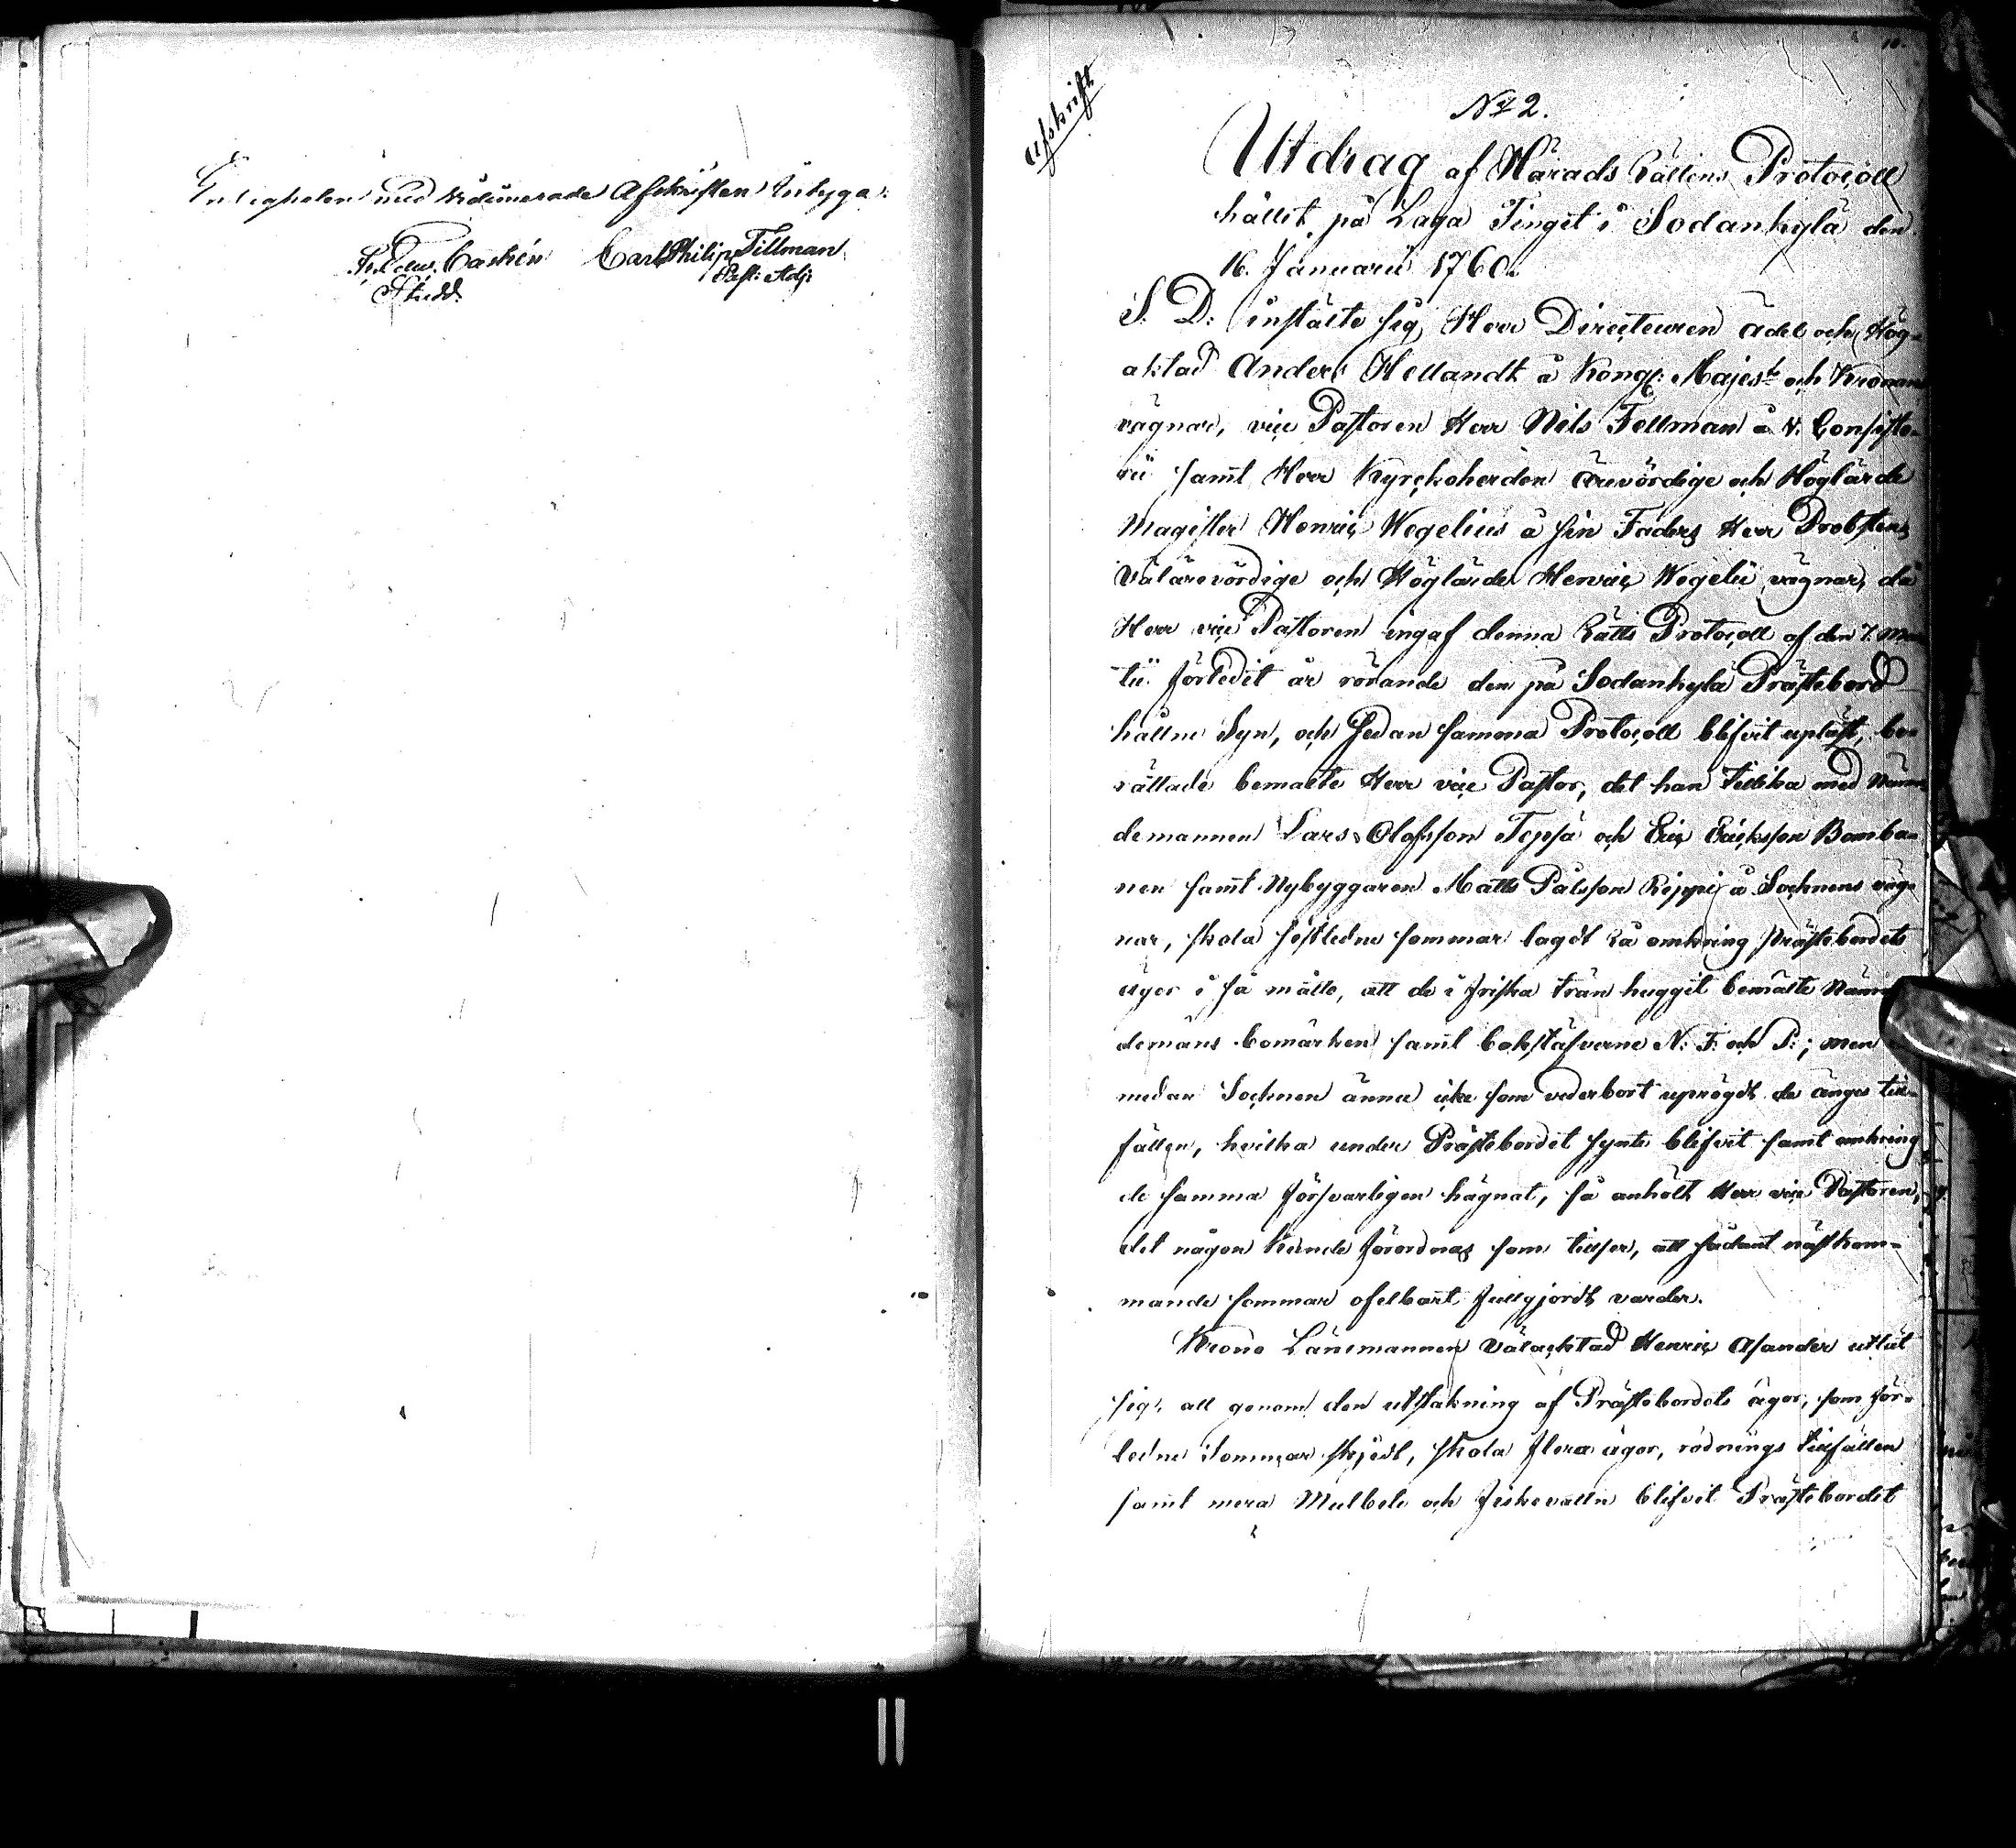 Enligheten med vidimerade Afskriften intyga:
Carl Philip Tillman
Past: Adj:
Studd
10.
Afskrift
No 2.
Utdrag af Härads Rättens Protocoll
hållit på Laga Tinget i Sodankylä den
16. Januarii 1760.
S. D: instälte sig Herr Directeuren Ädel och Hög-
aktad Anders Hellandt å Kongl: Majest:s och Kronans
vägnar, vice Pastoren Herr Nils Fellman å V. Consisto-
rii samt Herr Kyrckoherden ärevördige och Höglärde
Magister Henric Wegelius å sin Faders Herr Probstens
Välärevördige och Höglärde Henric Wegelii vägnar, då
Herr vice Pastoren ingaf denna Rätts Protocoll af den 7. Mar-
tii förledit år rörande den på Sodankylä Prästebord
hållne Syn, och sedan samma Protocoll blifvit upläst, be-
rättade bemälte Herr vice Pastor, det han tillika med Nämn-
demannen Lars Olofsson Tepsa och Eric Ericksson Bomba-
nen samt Nybyggaren Matts Pålsson Rippi å Sochnens väg-
nar, skola sistledne sommar lagdt Rå omkring Prästebordets
ägor i så måtto, att de i friska trän huggit bemälte Nämn-
demäns bomärken samt bokstäfverne N: F: och P:; men
medan Sochnen ännu icke som vederbort uprögdt de änges till-
fällen, hvilka under Prästebordet synte blifvit samt omkring
de samma försvarligen hägnat, så anhölt Herr vice Pastoren,
det någon kunde förordnas som tillser, att sådant nästkom-
mande sommar ofelbart fullgjordt varder.
Krono Länsmannen Välacktad Henric Asander utlät
sig, att genom den utstakning af Prästebordets ägor, som för-
ledne Sommar skjedt, skola flera ägor, rödnings tillfällen
samt mera Mulbete och fiskevattn blifvit Prästebordet